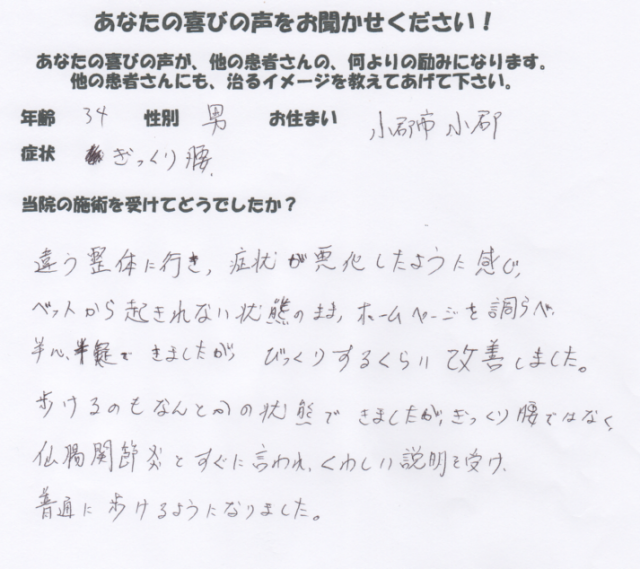 あなたの喜びの声をお聞かせください！
あなたの喜びの声が、他の患者さんの、何よりの励みになります。
他の患者さんにも、治るイメージを教えてあげて下さい。
年齢 34 性別 男 お住まい 小郡市 小郡
症状 ぎっくり腰
当院の施術を受けてどうでしたか？
違う整体に行き、症状が悪化したように感じ、
ベットから起きれない状態のまま、ホームページを調らべ、
半心、半疑できましたが、びっくりするくらい改善しました。
歩けるのもなんとかの状態できましたが、ぎっくり腰ではなく、
仙腸関節炎とすぐに言われ、くわしい説明を受け、
普通に歩けるようになりました。